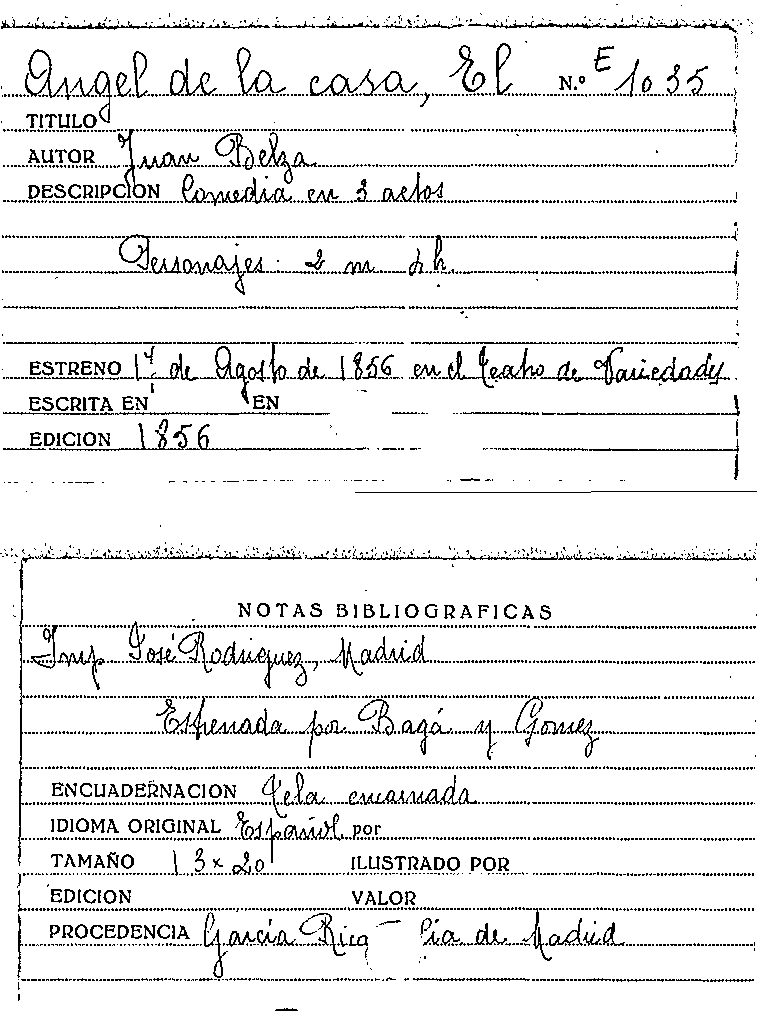 Angel de la casa, El N.º E 1035
TITULO
AUTOR Juan Belza
DESCRIPCION Comedia en 3 actos
Personajes: 2 m 4 h.
ESTRENO 1º de Agosto de 1856 en el Teatro de Variedades
ESCRITA EN EN
EDICION 1856
NOTAS BIBLIOGRAFICAS
Imp José Rodriguez, Madrid
Estrenada por Bagá y Gomez
ENCUADERNACION Tela encarnada
IDIOMA ORIGINAL Español por
TAMAÑO 13 x 20 ILUSTRADO POR
EDICION VALOR
PROCEDENCIA García Rico Cia de Madrid